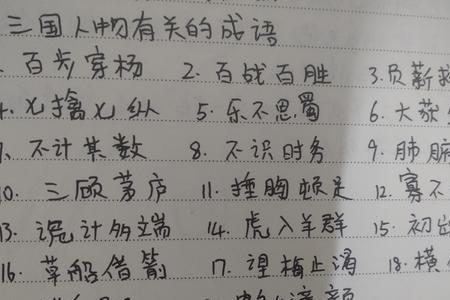 三国人物有关的成语
百步穿杨 2. 百战百胜 3. 负薪救
4. 七擒七纵 5. 乐不思蜀 6. 大莅
7. 不计其数 8. 不识时务 9. 肺腑
10. 三顾茅庐 11. 捶胸顿足 12. 寡不
13. 诡计多端 14. 虎入羊群 15. 初出
16. 草船借箭 17. 望梅止渴 18. 横